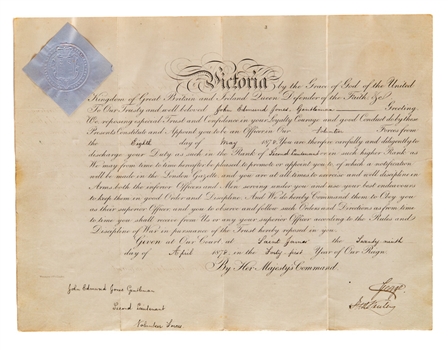 Victoria by the Grace of God of the United
Kingdom of Great Britain and Ireland Queen Defender of the Faith &c
To Our Trusty and well beloved John Edmund Jones, Gentleman Greeting
We reposing especial Trust and Confidence in your Loyalty Courage and good Conduct do by these
Presents Constitute and Appoint you to be an Officer in Our Volunteer Forces from
the Eighth day of May 1878 You are therefore carefully and diligently to
discharge your Duty as such in the Rank of Second Lieutenant or in such higher Rank as
We may from time to time hereafter be pleased to promote or appoint you to of which a notification
will be made in the London Gazette and you are at all times to exercise and well discipline in
Arms both the inferior Officers and Men serving under you and use your best endeavours
to keep them in good Order and Discipline And We do hereby Command them to Obey you
as their superior Officer and you to observe and follow such Orders and Directions as from time
to time you shall receive from Us or any your superior Officer according to the Rules and
Discipline of War in pursuance of the Trust hereby reposed in you
Given at Our Court at Saint James' the Twenty ninth
day of April 1878 in the Forty first Year of Our Reign
By Her Majesty's Command
John Edmund Jones Gentleman
Second Lieutenant
Volunteer Forces